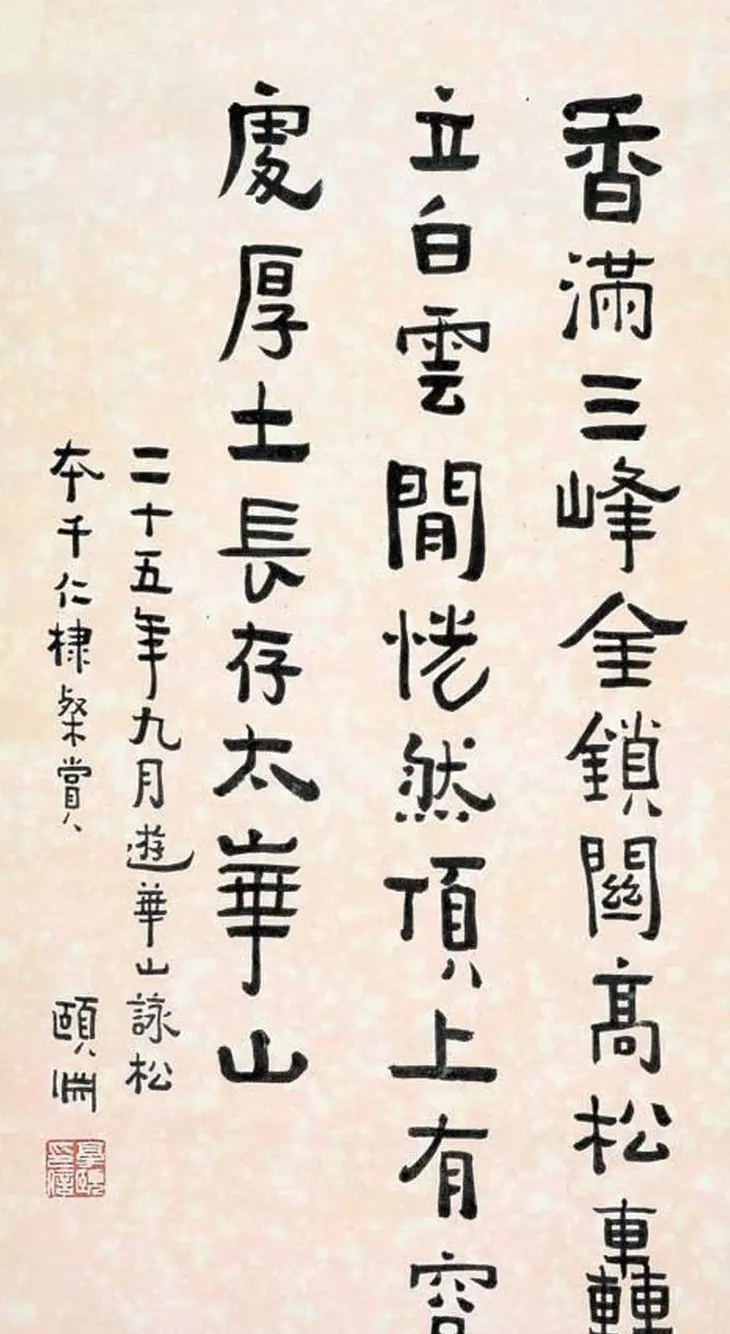 香滿三峰金鎖關高松轟
立白雲閒恍然頂上有容
處厚土長存太華山
二十五年九月遊華山詠松
本千仁棣粲賞
頤淵